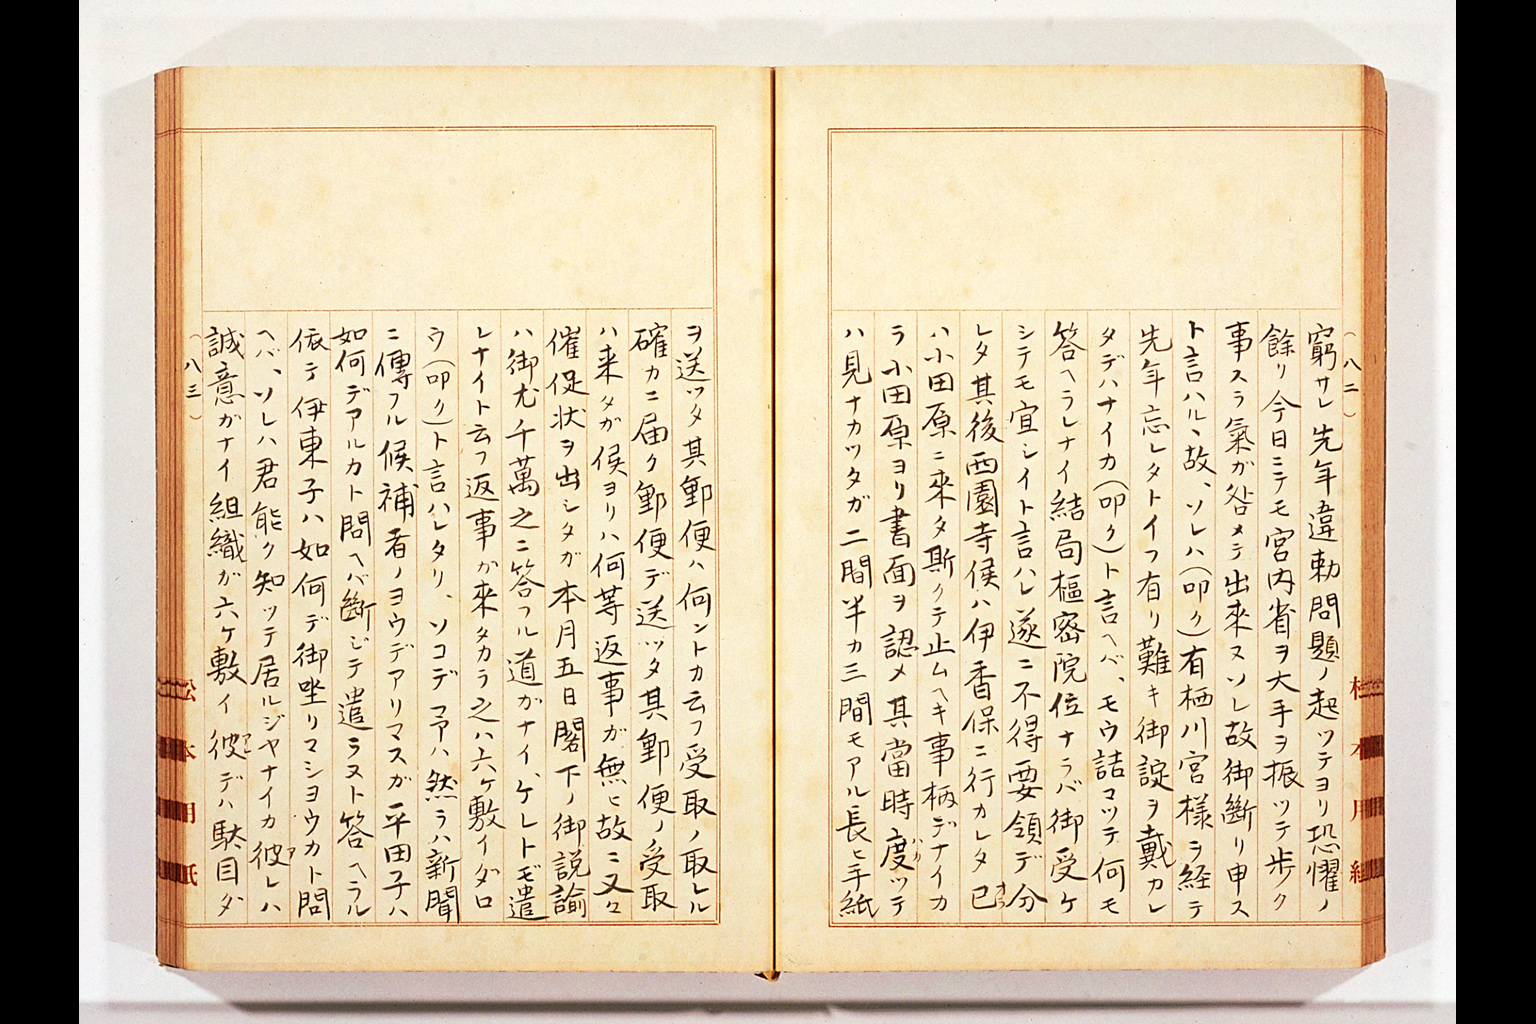 (八二)
窮サレ先年違勅問題ノ起ツテヨリ恐懼ノ
餘リ今日ニテモ宮内省ヲ大手ヲ振ツテ歩ク
事スラ氣ガ咎メテ出來ヌソレ故御斷リ申ス
ト言ハル、故、ソレハ(叩ク)有栖川宮様ヲ経テ
先年忘レタトイフ有リ難キ御諚ヲ戴カレ
タデハナイカ(叩ク)ト言ヘバ、モウ詰マツテ何モ
答ヘラレナイ結局樞密院位ナラバ御受ケ
シテモ宜シイト言ハレ遂ニ不得要領デ分
レタ其後西園寺侯ハ伊香保ニ行カレタ己
ハ小田原ニ來タ斯クテ止ムヘキ事柄デナイカ
ラ小田原ヨリ書面ヲ認メ其當時度ツテ
ハ見ナカツタガ二間半カ三間モアル長ヒ手紙
ヲ送ツタ其郵便ハ何ントカ云フ受取ノ取レル
確カニ届ク郵便デ送ツタ其郵便ノ受取
ハ来タガ侯ヨリハ何等返事ガ無ヒ故ニ又々
催促状ヲ出シタガ本月五日閣下ノ御説諭
ハ御尤千萬之ニ答フル道ガナイ、ケレトモ遣
レナイト云フ返事ガ來タカラ之ハ六ケ敷イダロ
ウ(叩ク)ト言ハレタリ、ソコデ予ハ然ラハ新聞
ニ傳フル候補者ノヨウデアリマスガ平田子ハ
如何デアルカト問ヘバ斷ジテ遣ラヌト答ヘラル
依テ伊東子ハ如何デ御座リマシヨウカト問
ヘバ、ソレハ君能ク知ツテ居ルジヤナイカ彼レハ
誠意ガナイ組織ガ六ケ敷イ彼デハ駄目ダ
(八三)
松本用紙